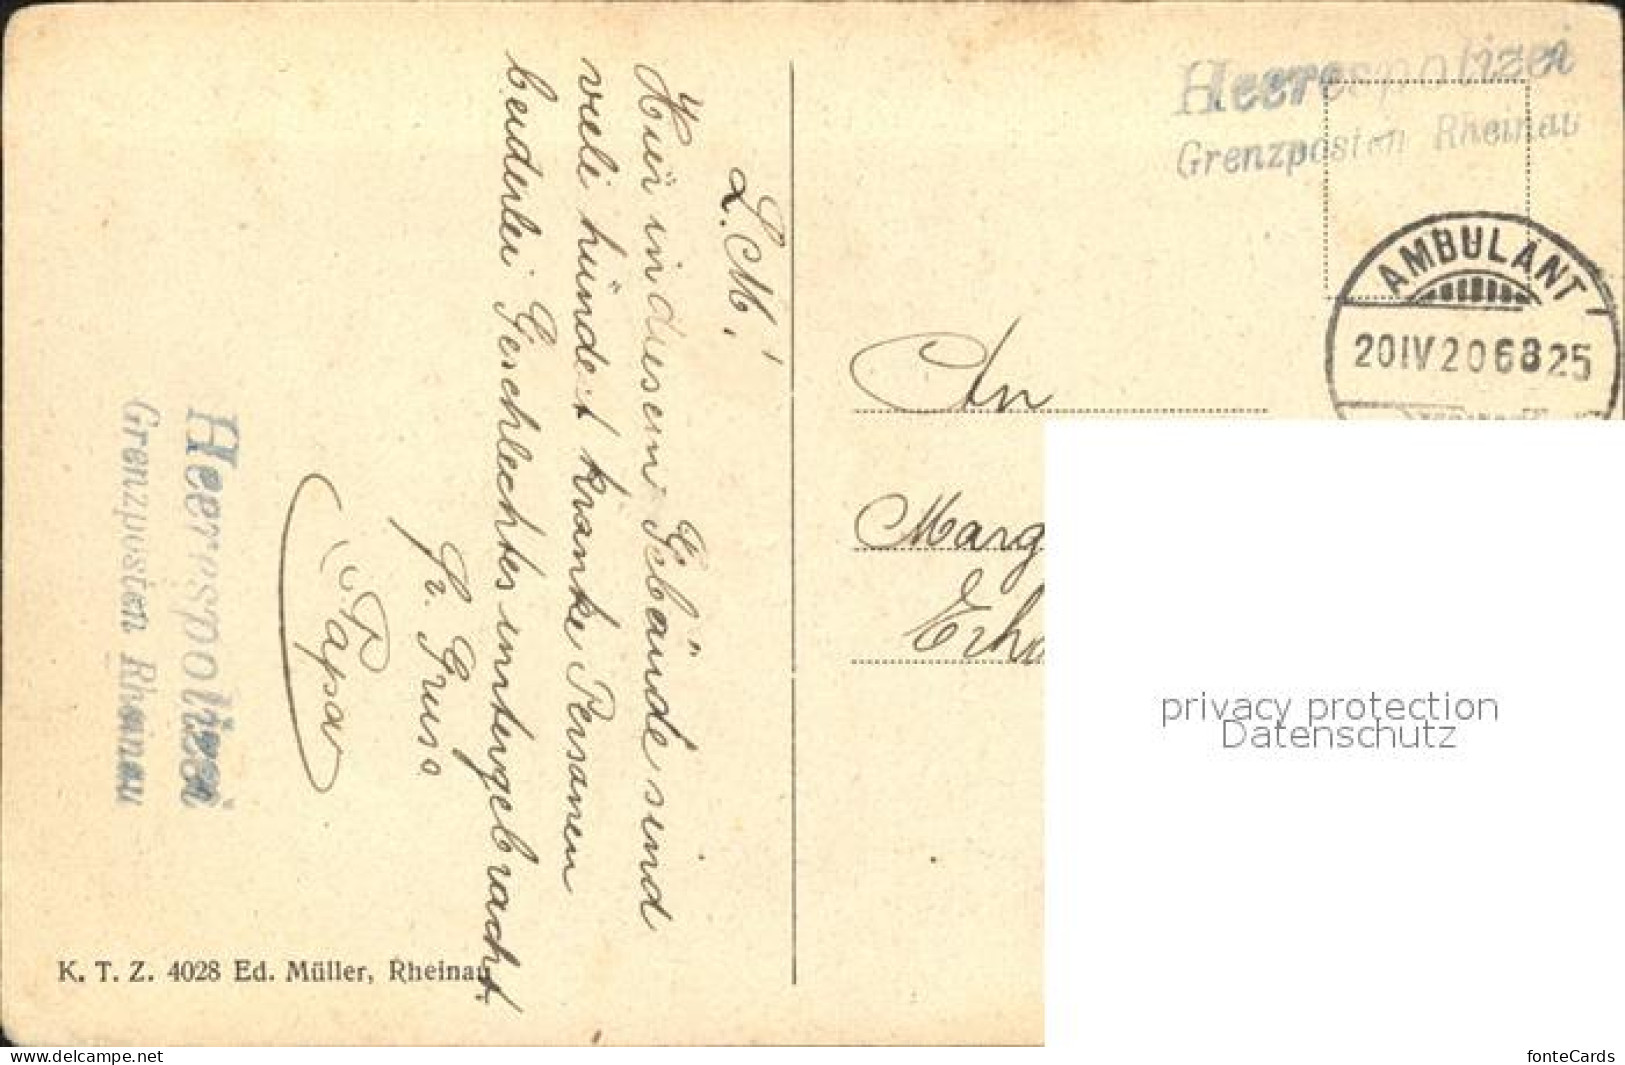 L. M.!
Hier in diesem Gebäude sind
viele hundert kranke Personen
beiderlei Geschlechtes untergebracht.
Gr. Gruss
Papa
Heerespolizei
Grenzposten Rheinau
K. T. Z. 4028 Ed. Müller, Rheinau
Heerespolizei
Grenzposten Rheinau
AMBULANT
20 IV 20 6825
An
Marg
Erh
privacy protection
Datenschutz
www.delcampe.net
fonteCards